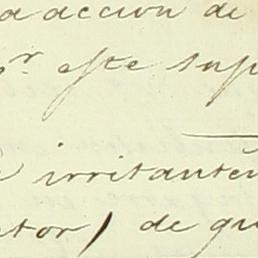 acción de
pr este sup
irritante
tor) de qu